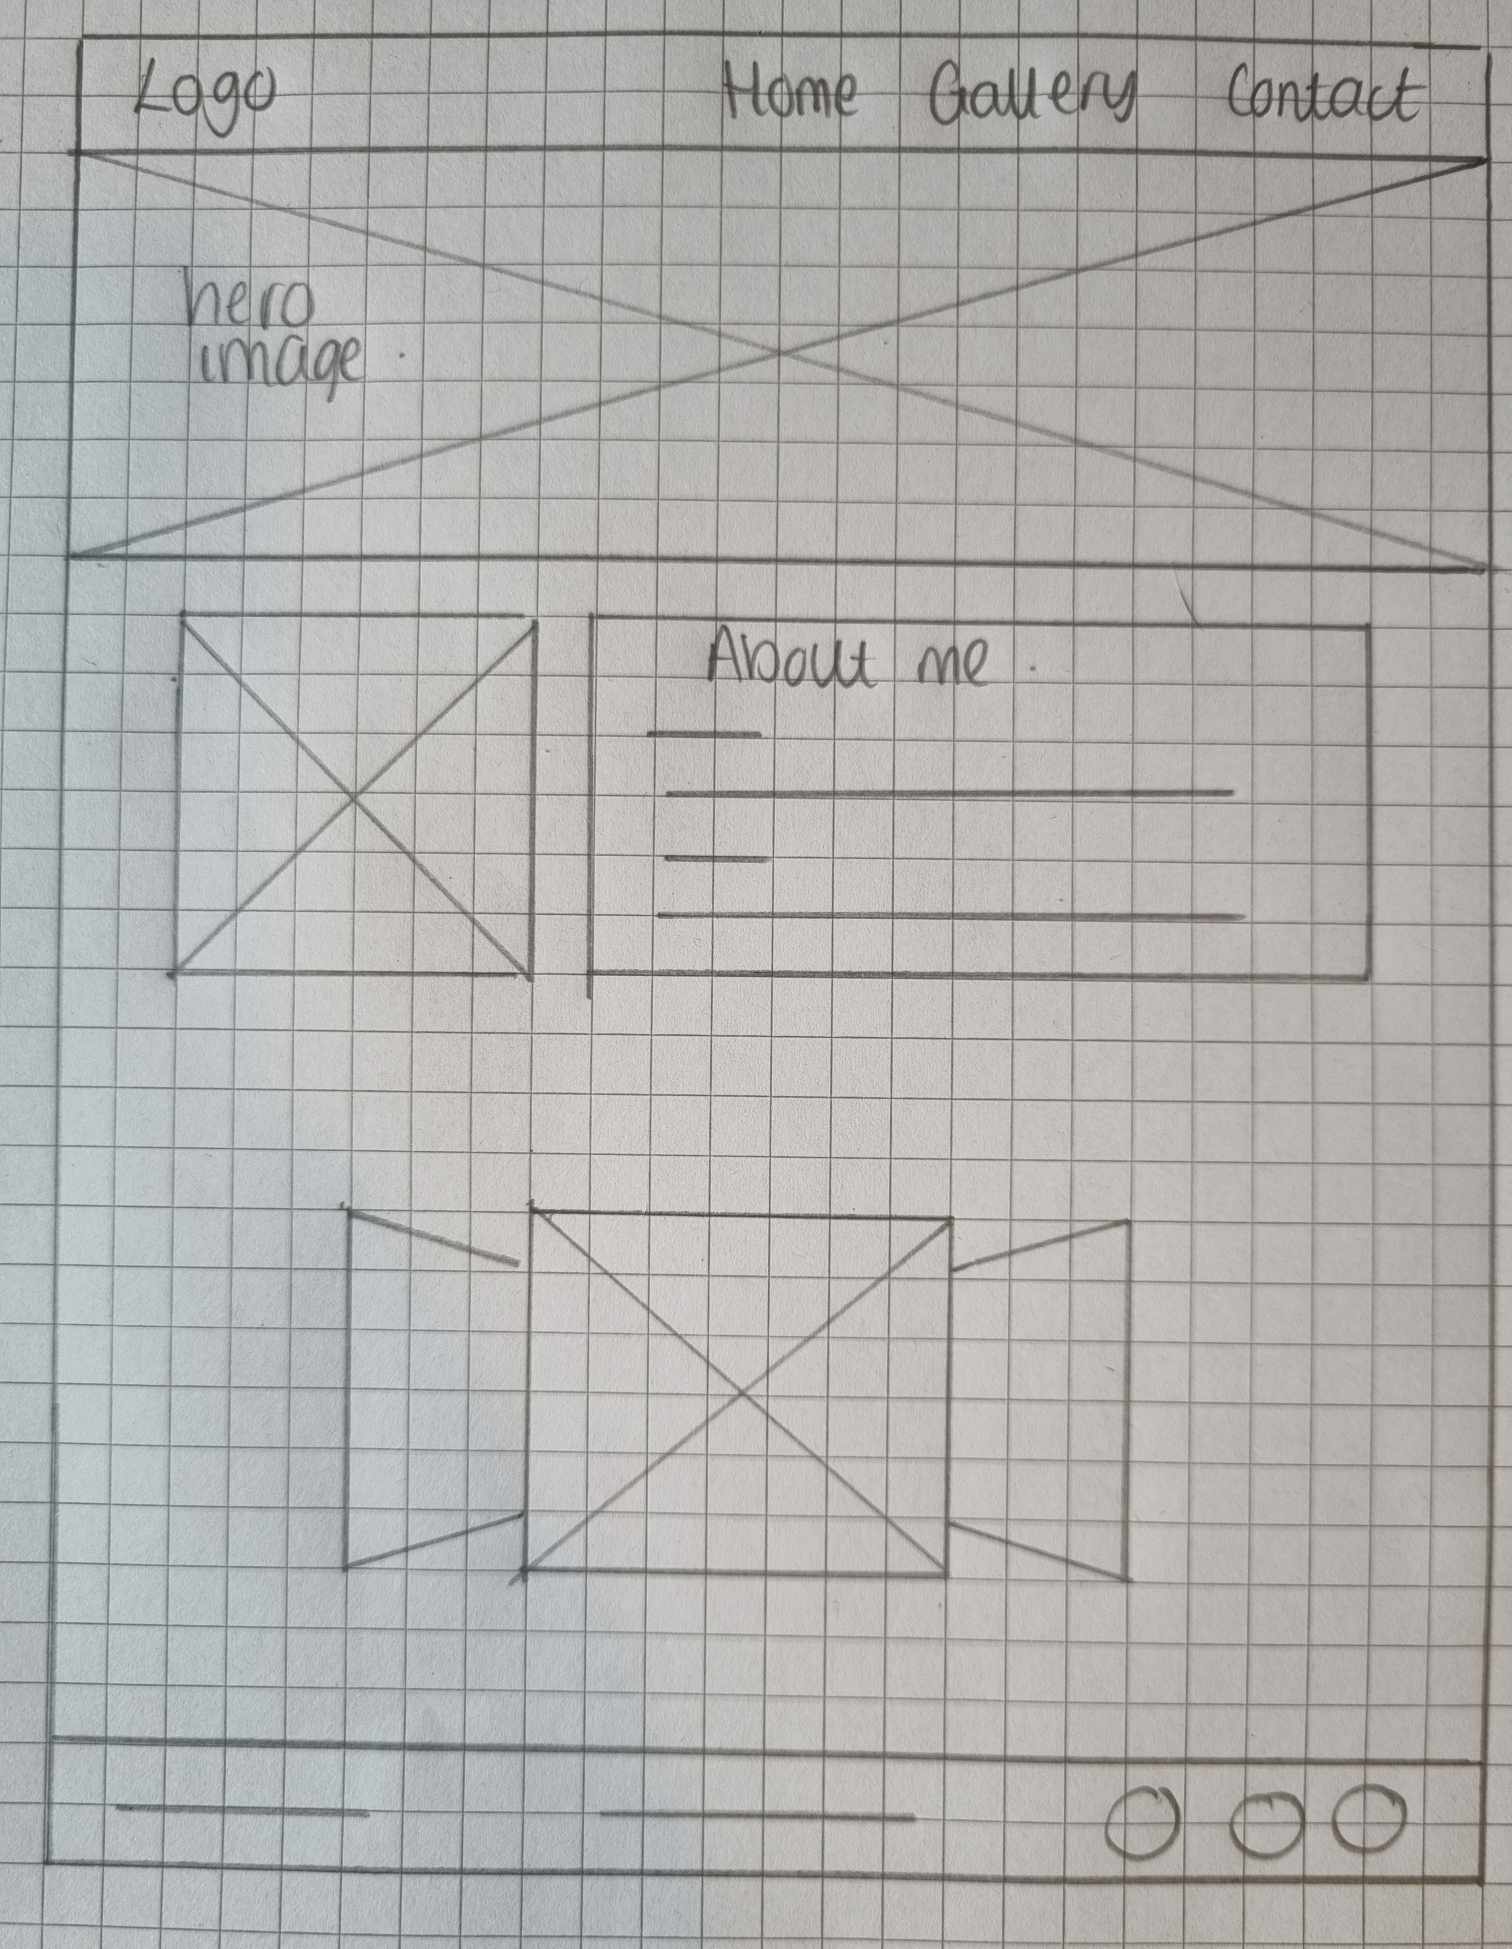 Logo Home Gallery Contact
hero
image.
About me.